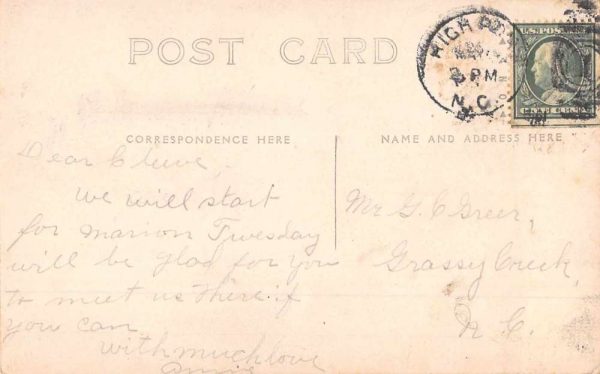 POST CARD
HIGH PO
MAY
PM
N.C.
U.S. POSTAGE
CORRESPONDENCE HERE
NAME AND ADDRESS HERE
Dear
we will start
for marion Tuesday
will be glad for you
to meet us there if
you can
with much love
Mr G. C Greer,
Grassy Creek,
N C.